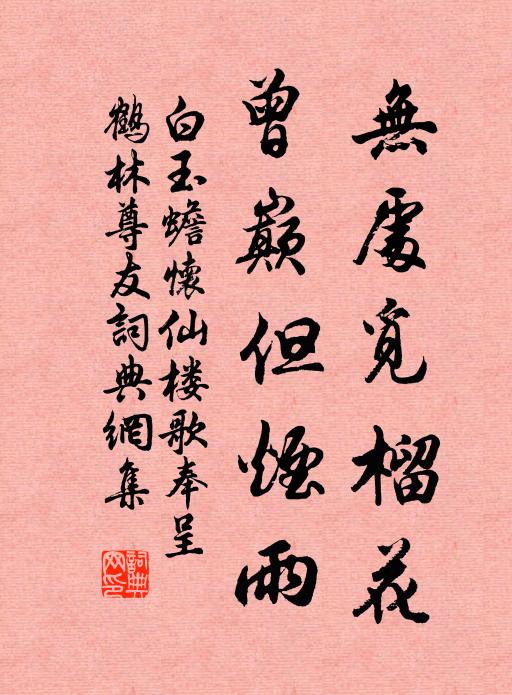 無處覓榴花
曾巔但煙雨
白玉蟾懷仙楼歌奉呈
鶴林尊友詞典網集
詞典网印